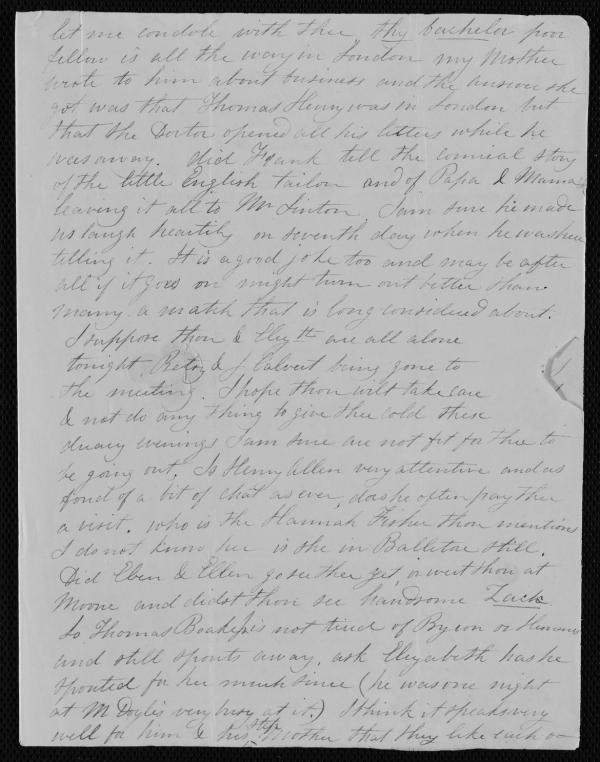 let me condole with thee, thy bachelor poor
fellow is all the way in London my Mother
wrote to him about business and the answer she
got was that Thomas Henry was in London but
that the Doctor opened all his letters while he
was away. did Frank tell the comical story
of the little English tailor and of Papa & Mama
leaving it all to Mr Linton, I am sure he made
us laugh heartily on seventh day when he was here
telling it. It is a good joke too and may be after
all if it goes on might turn out better than
many a match that is long considered about.
I suppose thou & Elizth are all alone
tonight Betsy & J Calvert being gone to
the meeting. I hope thou wilt take care
& not do any thing to give thee cold these
dreary evenings I am sure are not fit for thee to
be going out. Is Henry Allen very attentive and as
fond of a bit of chat as ever, does he often pay thee
a visit. who is the Hannah Fisher thou mentions
I do not know her is she in Ballitore still.
Did Eben & Ellen go see thee yet, or went thou at
Moone and didst thou see handsome Zack
So Thomas is not tired of Byron or
and still spouts away. ask Elizabeth has he
spouted for her much since (he was one night
at M Doyles very busy at it.) I think it speaks very
well for him & his step Mother that they like each o-